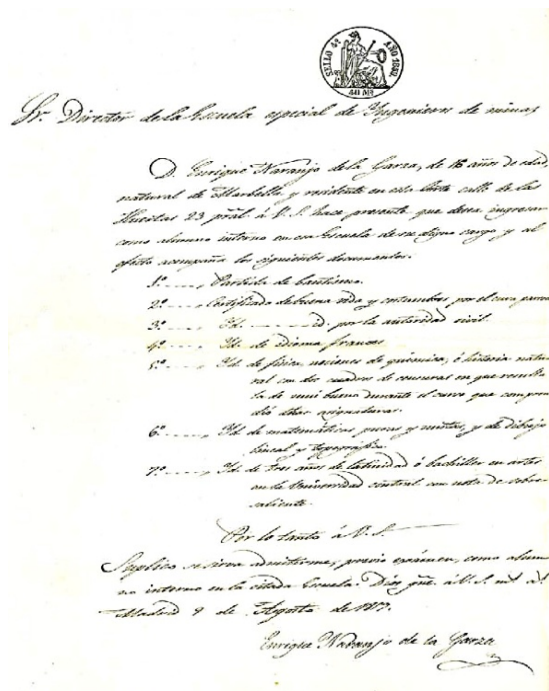 SELLO 4º AÑO 1861
40 Mº
Sr. Director de la Escuela especial de Ingenieros de minas
D. Enrique Naranjo de la Garza, de 16 años de edad,
natural de Marbella y residente en esta Corte calle de las
Huertas 23 pral á V. S. hace presente que desea ingresar
como alumno interno en esa Escuela de su digno cargo y al
efecto acompaña los siguientes documentos.
1º Partida de bautismo.
2º Certificado de buena vida y costumbres por el cura parroco
3º Id. id. por la autoridad civil.
4º Id. de idioma frances
5º Id. de fisica, nociones de quimica, é historia natu-
ral con dos cuadros de censuras en que resulta
la de muy bueno durante el curso que compren-
dió dhas asignaturas.
6º Id. de matematicas puras y mixtas, y de dibujo
lineal y topografico.
7º Id. de tres años de latinidad ó bachiller en artes
en la Universidad central con nota de sobre-
saliente.
Por lo tanto á V. S.
Suplico se sirva admitirme, previo exámen, como alum-
no interno en la citada Escuela. Dios gue. á V. S. ms. as.
Madrid 9 de Agosto de
Enrique Naranjo de la Garza